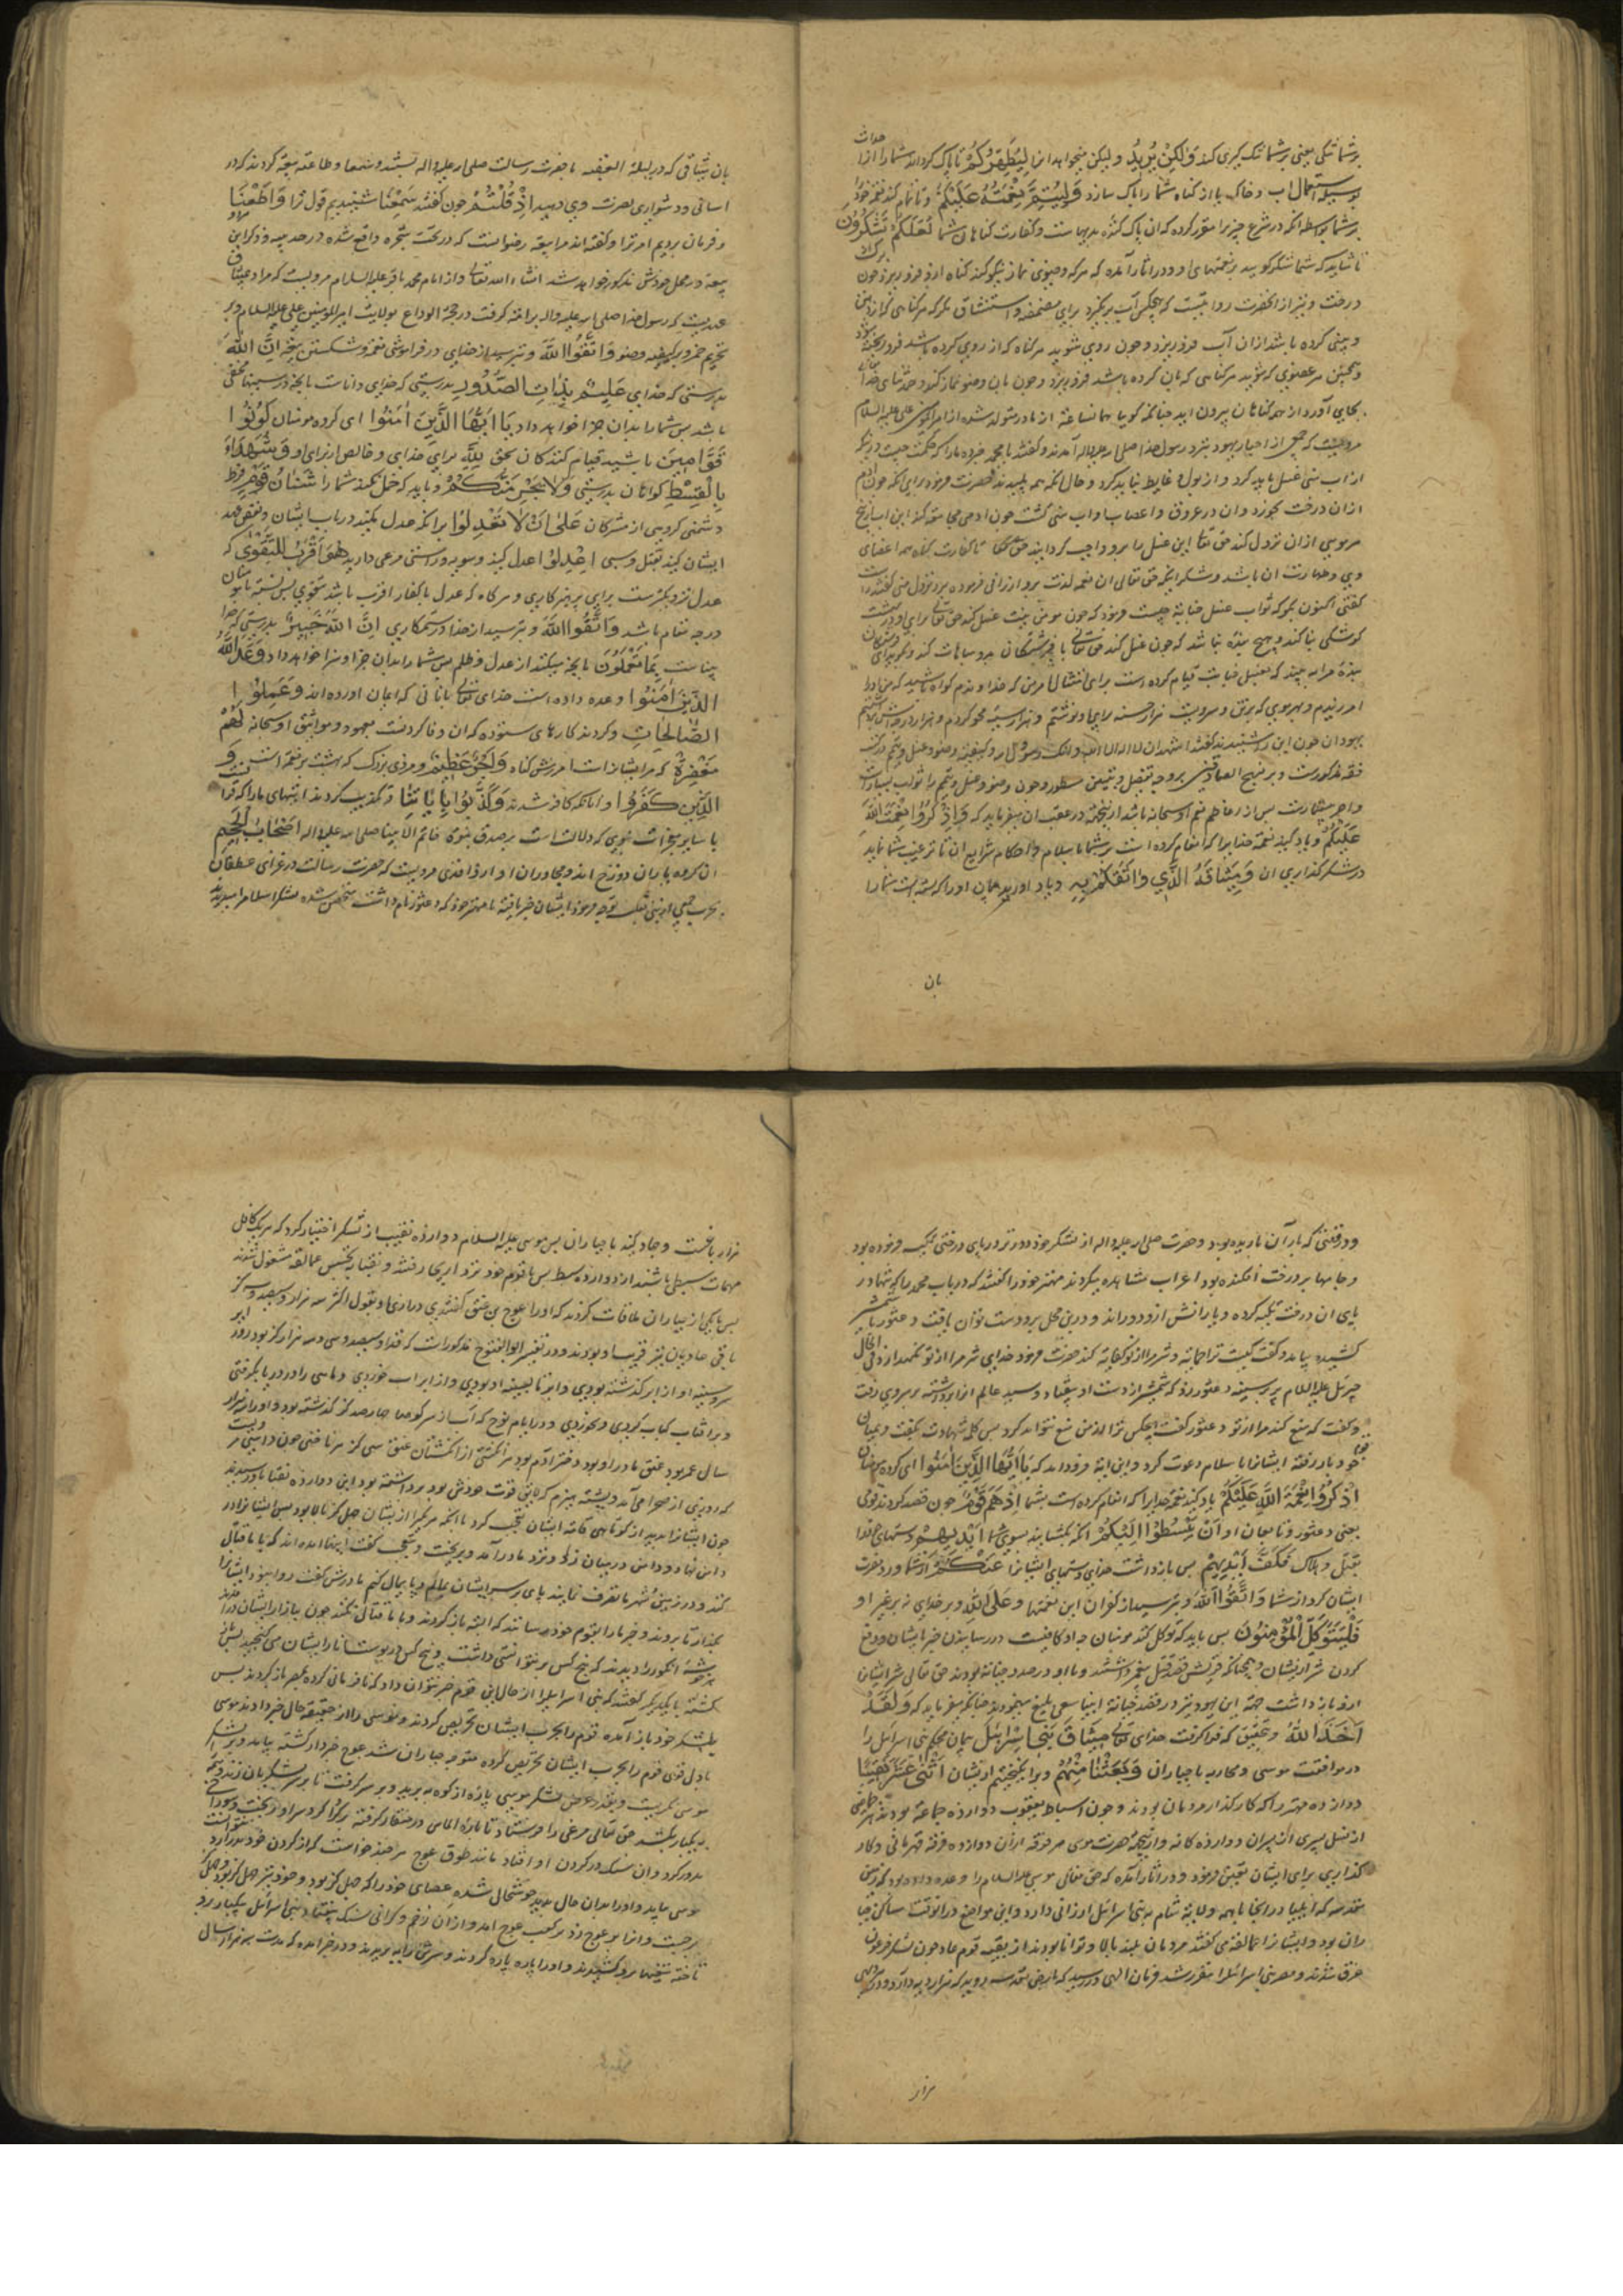 بر شما تنگی یعنی بر شما تنگ گیری کند وَلٰكِنْ يُرِيدُ و لیکن میخواهد این لِيُطَهِّرَكُمْ تا پاک گرداند شما را از احداث
استعمال آب و خاک یا از گناه شما را پاک سازد وَلِيُتِمَّ نِعْمَتَهُ عَلَيْكُمْ و تا تمام کند نعم خود را
بر شما بواسطه آنکه در شرع چیزی مقرر کرده که آن پاک کننده بدنهاست و کفارت گناهان شما لَعَلَّكُمْ تَشْكُرُونَ
تا شاید که شما شکر گویید بر نعمتهای او و در آثار آمده که هر که وضوی نماز نیکو کند گناه از او فرو ریزد چون برگ
درخت و نیز از آنحضرت روایتست که هیچکس آب بر نگیرد برای مضمضه و استنشاق مگر که هر گناهی که از دهن
و بینی کرده باشد از آن آب فرو ریزد و چون روی بشوید هر گناه که از روی کرده باشد فرو ریخته شود
و همچنین هر عضوی که بشوید هر گناهی که بآن کرده باشد فرو ریزد و چون بآن وضو نماز کند و حمد و ثنای خدا
بجای آورد از همه گناهان بیرون آید چنانکه گویا همانساعت از مادر متولد شده از امیرالمؤمنین علی علیه السلام
مرویست که جمعی از احبار یهود نزد رسول خدا صلی الله علیه و اله آمدند و گفتند یا محمد خبر ده ما را که حکمت چیست در آنکه
از آب منی غسل باید کرد و از بول و غایط نباید کرد و حال آنکه همه پلیدند حضرت فرمود برای آنکه چون آدم
از آن درخت بخورد و آن در عروق و اعصاب او آب منی گشت چون آدمی مجامعت کند این آب از بیخ
هر موی از آن نزول کند حق تعالی این غسل را بر او واجب گردانید تا کفارت گناه همه اعضای
وی و طهارت آن باشد و شکر آنکه حق تعالی آن نعمه لذت بر او ارزانی فرموده بر و نزول منی گفتند راست
گفتی اکنون بگو که ثواب غسل جنابة چیست فرمود که چون مؤمن نیت غسل کند حق تعالی برای او در بهشت
کوشکی بنا کند و هیچ بنده نباشد که چون غسل کند حق تعالی با فرشتگان بدو مباهات کند و گوید ای فرشتگان
بنده مرا به بینید که بغسل جنابت قیام کرده است برای امتثال امر من که خداوندم گواه باشید که من او را
آمرزیدم و بهر موی که بر تن و سر اوست هزار حسنه برای او نوشتم و هزار سیئه محو کردم و هزار درجه
یهودان چون این را شنیدند گفتند اشهد ان لا اله الا الله و انک رسول الله و کیفیت وضو و غسل و تیمم در کتب
فقه مذکورست و بر منهج الصادقین بر وجه تفصیل و تبیین مسطور و چون وضو و غسل و تیمم را ثواب بسیارست
و اجر بیشمارست پس از اعاظم نعم او سبحانه باشد از این جهت در عقب آن میفرماید که وَاذْكُرُوا نِعْمَتَ اللّٰهِ
عَلَيْكُمْ و یاد کنید نعمة خدایرا که انعام کرده است بر شما باسلام و احکام شرایع آن تا ترغیب شما نماید
در شکر گذاری آن وَمِيثَاقَهُ الَّذِي وَاثَقَكُمْ بِهِ و یاد آورید پیمان او را که بسته است شما را
بان
بان میثاقی که در لیلة العقبه با حضرت رسالت صلی الله علیه و اله بستند و سمعا و طاعة بیعة کردند که در
آسانی و دشواری نصرت وی دهید اِذْ قُلْتُمْ چون گفتند سَمِعْنَا شنیدیم قول ترا وَاَطَعْنَا
و فرمان بردیم امر ترا و گفته اند مراد بیعة رضوانست که در تحت شجره واقع شده در حدیبیه و ذکر این
بیعة در محل خودش مذکور خواهد شد انشاء الله تعالی و از امام محمد باقر علیه السلام مرویست که مراد میثاق
عهدیست که رسول خدا صلی الله علیه و اله بر امة گرفت در حجة الوداع بولایت امیرالمؤمنین علی علیه السلام و بر
تحریم خمر و بر کیفیة وضو وَاتَّقُوا اللّٰهَ و بترسید از خدای در فراموشی نعم و شکستن پیمان اِنَّ اللّٰهَ
بدرستی که خدای عَلِيمٌ بِذَاتِ الصُّدُورِ بدرستی که خدای داناست بآنچه در سینها مخفی
باشد پس شما را بدان جزا خواهد داد يَا اَيُّهَا الَّذِينَ اٰمَنُوا ای گروه مؤمنان كُونُوا
قَوَّامِينَ باشید قیام کنندگان بحق لِلّٰهِ برای خدای و خالص از برای او شُهَدَاءَ
بِالْقِسْطِ گواهان براستی وَلَا يَجْرِمَنَّكُمْ و باید که حمل نکند شما را شَنَاٰنُ قَوْمٍ فرط
دشمنی گروهی از مشرکان عَلٰى اَنْ لَا تَعْدِلُوا بر آنکه عدل نکنید در باب ایشان و نقض عهد
ایشان کنید بقتل و سبی اِعْدِلُوا عدل کنید و سویه و راستی مرعی دارید هُوَ اَقْرَبُ لِلتَّقْوٰى که
عدل نزدیکترست برای پرهیزکاری و هر گاه که عدل با کفار اقرب باشد بتقوی پس نسبت با مؤمنان
درچه مقام باشد وَاتَّقُوا اللّٰهَ و بترسید از خدا در ستمکاری اِنَّ اللّٰهَ خَبِيرٌ بدرستی که خدا
بیناست بِمَا تَعْمَلُونَ بآنچه میکنید از عدل و ظلم پس شما را بدان جزا و سزا خواهد داد وَعَدَ اللّٰهُ
الَّذِينَ اٰمَنُوا وعده داده است خدای تعالی بانانی که ایمان اورده اند وَعَمِلُوا
الصَّالِحَاتِ و کردند کارهای ستوده که آن وفا کردنست بعهود و مواثیق او سبحانه لَهُمْ
مَغْفِرَةٌ که مر ایشانراست امرزش گناه وَاَجْرٌ عَظِيمٌ و مزدی بزرگ که بهشت پر نعمة است وَ
الَّذِينَ كَفَرُوا و آنانکه کافر شدند وَكَذَّبُوا بِاٰيَاتِنَا و تکذیب کردند ایتهای ما را که قرآنست
یا سایر معجزات نبوی که دلالت است بر صدق نبوة خاتم الانبیا صلی الله علیه و اله اَصْحَابُ الْجَحِيمِ
آن گروه یاران دوزخ اند و مجاوران او واقدی مرویست که حضرت رسالت در غزای غطفان
بحرب جمعی از بنی توجه فرمود ایشان خبر یافته با مهتر خود که دعثور نام داشت متحصن شده لشکر اسلام را میدیدند
و در وقتی که باران باریده بود و حضرت صلی الله علیه و اله از لشکر خود دورتر در پای درختی تکیه فرموده بود
و جامها بر درخت افکنده بود اعراب مشاهده میکردند مهتر خود را گفتند که دریاب محمد را که تنها در
پای آن درخت تکیه کرده و یارانش از و دوراند و درین محل بر و دست توان یافت دعثور با شمشیر
کشیده بیامد و گفت کیست ترا حمایة و شر مرا از تو کفایة کند حضرت فرمود خدای شر مرا از تو نگهدارد فی الحال
جبرئیل علیه السلام بر سینه دعثور زد که شمشیر از دست او بیفتاد و سید عالم انرا برداشته بر سر وی رفت
و گفت که منع کند مرا از تو دعثور گفت هیچکس ترا از من منع نتواند کرد پس کلمه شهادت بگفت و بمیان
قوم خود باز رفته ایشانرا باسلام دعوت کرد و این آیة فرود آمد که يَا اَيُّهَا الَّذِينَ اٰمَنُوا ای گروه مؤمنان
اذْكُرُوا نِعْمَةَ اللّٰهِ عَلَيْكُمْ یاد کنید نعمة خدایرا که انعام کرده است بشما اِذْ هَمَّ قَوْمٌ چون قصد کردند قومی
یعنی دعثور و تابعان او اَنْ يَبْسُطُوا اِلَيْكُمْ آنکه بگشایند بسوی شما اَيْدِيَهُمْ دستهای خود را
بقتل و هلاک فَكَفَّ اَيْدِيَهُمْ پس بازداشت خدای دستهای ایشانرا عَنْكُمْ از شما و رد مضرت
ایشان کرد از شما وَاتَّقُوا اللّٰهَ و بترسید از کفران این نعمتها وَعَلَى اللّٰهِ و بر خدای نه بر غیر او
فَلْيَتَوَكَّلِ الْمُؤْمِنُونَ پس باید که توکل کنند مؤمنان چه او کافیست در رسانیدن خیر بایشان و دفع
کردن شر از ایشان و همچنانکه قریش قصد قتل پیغمبر داشتند و با او در صدد جنایة بودند حق تعالی شر ایشانرا
از و بازداشت همه این یهود نیز در قصد جنایة انبیا سعی بلیغ مینمودند چنانچه میفرماید که وَلَقَدْ
اَخَذَ اللّٰهُ و بتحقیق که فراگرفت خدای تعالی مِيثَاقَ بَنِي اِسْرَائِيلَ پیمان محکم بنی اسرائیل را
در موافقت موسی و محاربه با جباران وَبَعَثْنَا مِنْهُمْ و برانگیختیم از ایشان اثْنَيْ عَشَرَ نَقِيبًا
دوازده مهتر را که کارگذار مردمان بودند و چون اسباط یعقوب دوازده جماعة بودند هر طایفه
از نسل پسری از پسران دوازده گانه و از این جهة حضرت موسی هر فرقه از آن دوازده فرقه قهرمانی و کار
گذاری برای ایشان تعیین فرمود و در آثار آمده که حق تعالی موسی علیه السلام را وعده داده بود که زمین
مقدسه که ایلیا و اریحا با همه ولایة شام به بنی اسرائیل ارزانی دارد و این مواضع در آنوقت مساکن جبا
ران بود و ایشانرا عمالقه می گفتند مردمان بلند بالا و توانا بودند از بقیه قوم عاد چون لشکر فرعون
غرق شدند و مصر بنی اسرائیل را مقرر شد فرمان الهی در رسید که بارض مقدسه بروید که هزار دیه دارد و در هر دیهی
هزار
هزار باغست و جهاد کنید با جباران پس موسی علیه السلام دوازده نقیب از لشکر اختیار کرد که هر یک کافل
مهمات سبطی باشند از دوازده سبط پس با قوم خود نزد اریحا رفتند و نقبا بتجسس عمالقه مشغول شدند
پس با یکی از جباران ملاقات کردند که او را عوج بن عنق گفتندی درازی او بقول اکثر سه هزار و سیصد و سی گز
باقی عادیان نیز قریب او بودند و در تفسیر ابوالفتوح مذکورست که قد او سیصد و سی و سه هزار گز بود و زور ابر
سر و سینه او از ابر گذشته بودی و ابر تا بسینه او بودی و از ابر آب خوردی و ماهی را در دریا بگرفتی
و بر آفتاب کباب کردی و بخوردی و در ایام نوح که آب از سر کوهها چهارصد گز گذشته بود و او را سه هزار
سال عمر بود عنق مادر او بود دختر آدم بود هر انگشتی از انگشتان عنق سی گز هر ناخنی چون داسی و بیست
که روزی از صحرا می آمد و پشته هیزم که لایق قوت خودش بود برداشته بود این دوازده نقبا باو رسیدند
چون ایشانرا بدید از کوتاهی قامة ایشان تعجب کرد با آنکه هر یک از ایشان چهل گز بالا بود پس ایشانرا در
دامن نهاد و دامن در میان زد و نزد مادر آمد و بریخت و بتعجب گفت اینها آمده اند که با ما قتال
کنند و در زمین شهر ما تصرف نمایند پای بر سر ایشان بمالم و پایمال کنم مادرش گفت روا نبود ایشانرا
بگذار تا بروند و خبر ما را بقوم خود رسانند که البته باز گردند و با ما قتال نکنند چون ببازار ایشان درآمدند
خوشه انگور را دیدند که پنج کس بر نتوانستی داشت و پنج کس در پوست انار ایشان می گنجید پس
گشته با یکدیگر گفتند که بنی اسرائیل را از حال این قوم خبر نتوان داد که نافرمانی کرده بمصر باز گردند پس
بلشکر خود باز آمده قوم را بحرب ایشان تحریص کردند و موسی را از حقیقت حال خبر دادند موسی
با دل قوی قوم را بحرب ایشان تحریص کرده متوجه جباران شد عوج خبردار گشته بیامد و بر لشکر
موسی نگریست و بقدر عرض لشکر موسی پاره از کوه ببرید و بر سر گرفت تا بر سر لشکریان زند و همه
بیکبار بکشد حق تعالی مرغی را فرستاد تا پارهٔ الماس در منقار گرفته بر گرد سر او بریخت و سوراخ
بدور کرد و آن سنگ در گردن او افتاد مانند طوق عوج هر چند خواست که از گردن خود بدر آرد نتوانست
موسی بیامد و او را بدان حال بدید خوشحال شده عصای خود را که چهل گز بود و خود نیز چهل گز بود و چهل گز
برجست و انرا بر عوج زد بر کعب عوج آمد و از آن زخم و گرانی سنگ بیفتاد و بنی اسرائیل بیکبار برو
تاخته تیغها برو کشیدند و او را پاره پاره کردند و سرش را به بریدند و در خبر آمده که مدت سه هزار سال